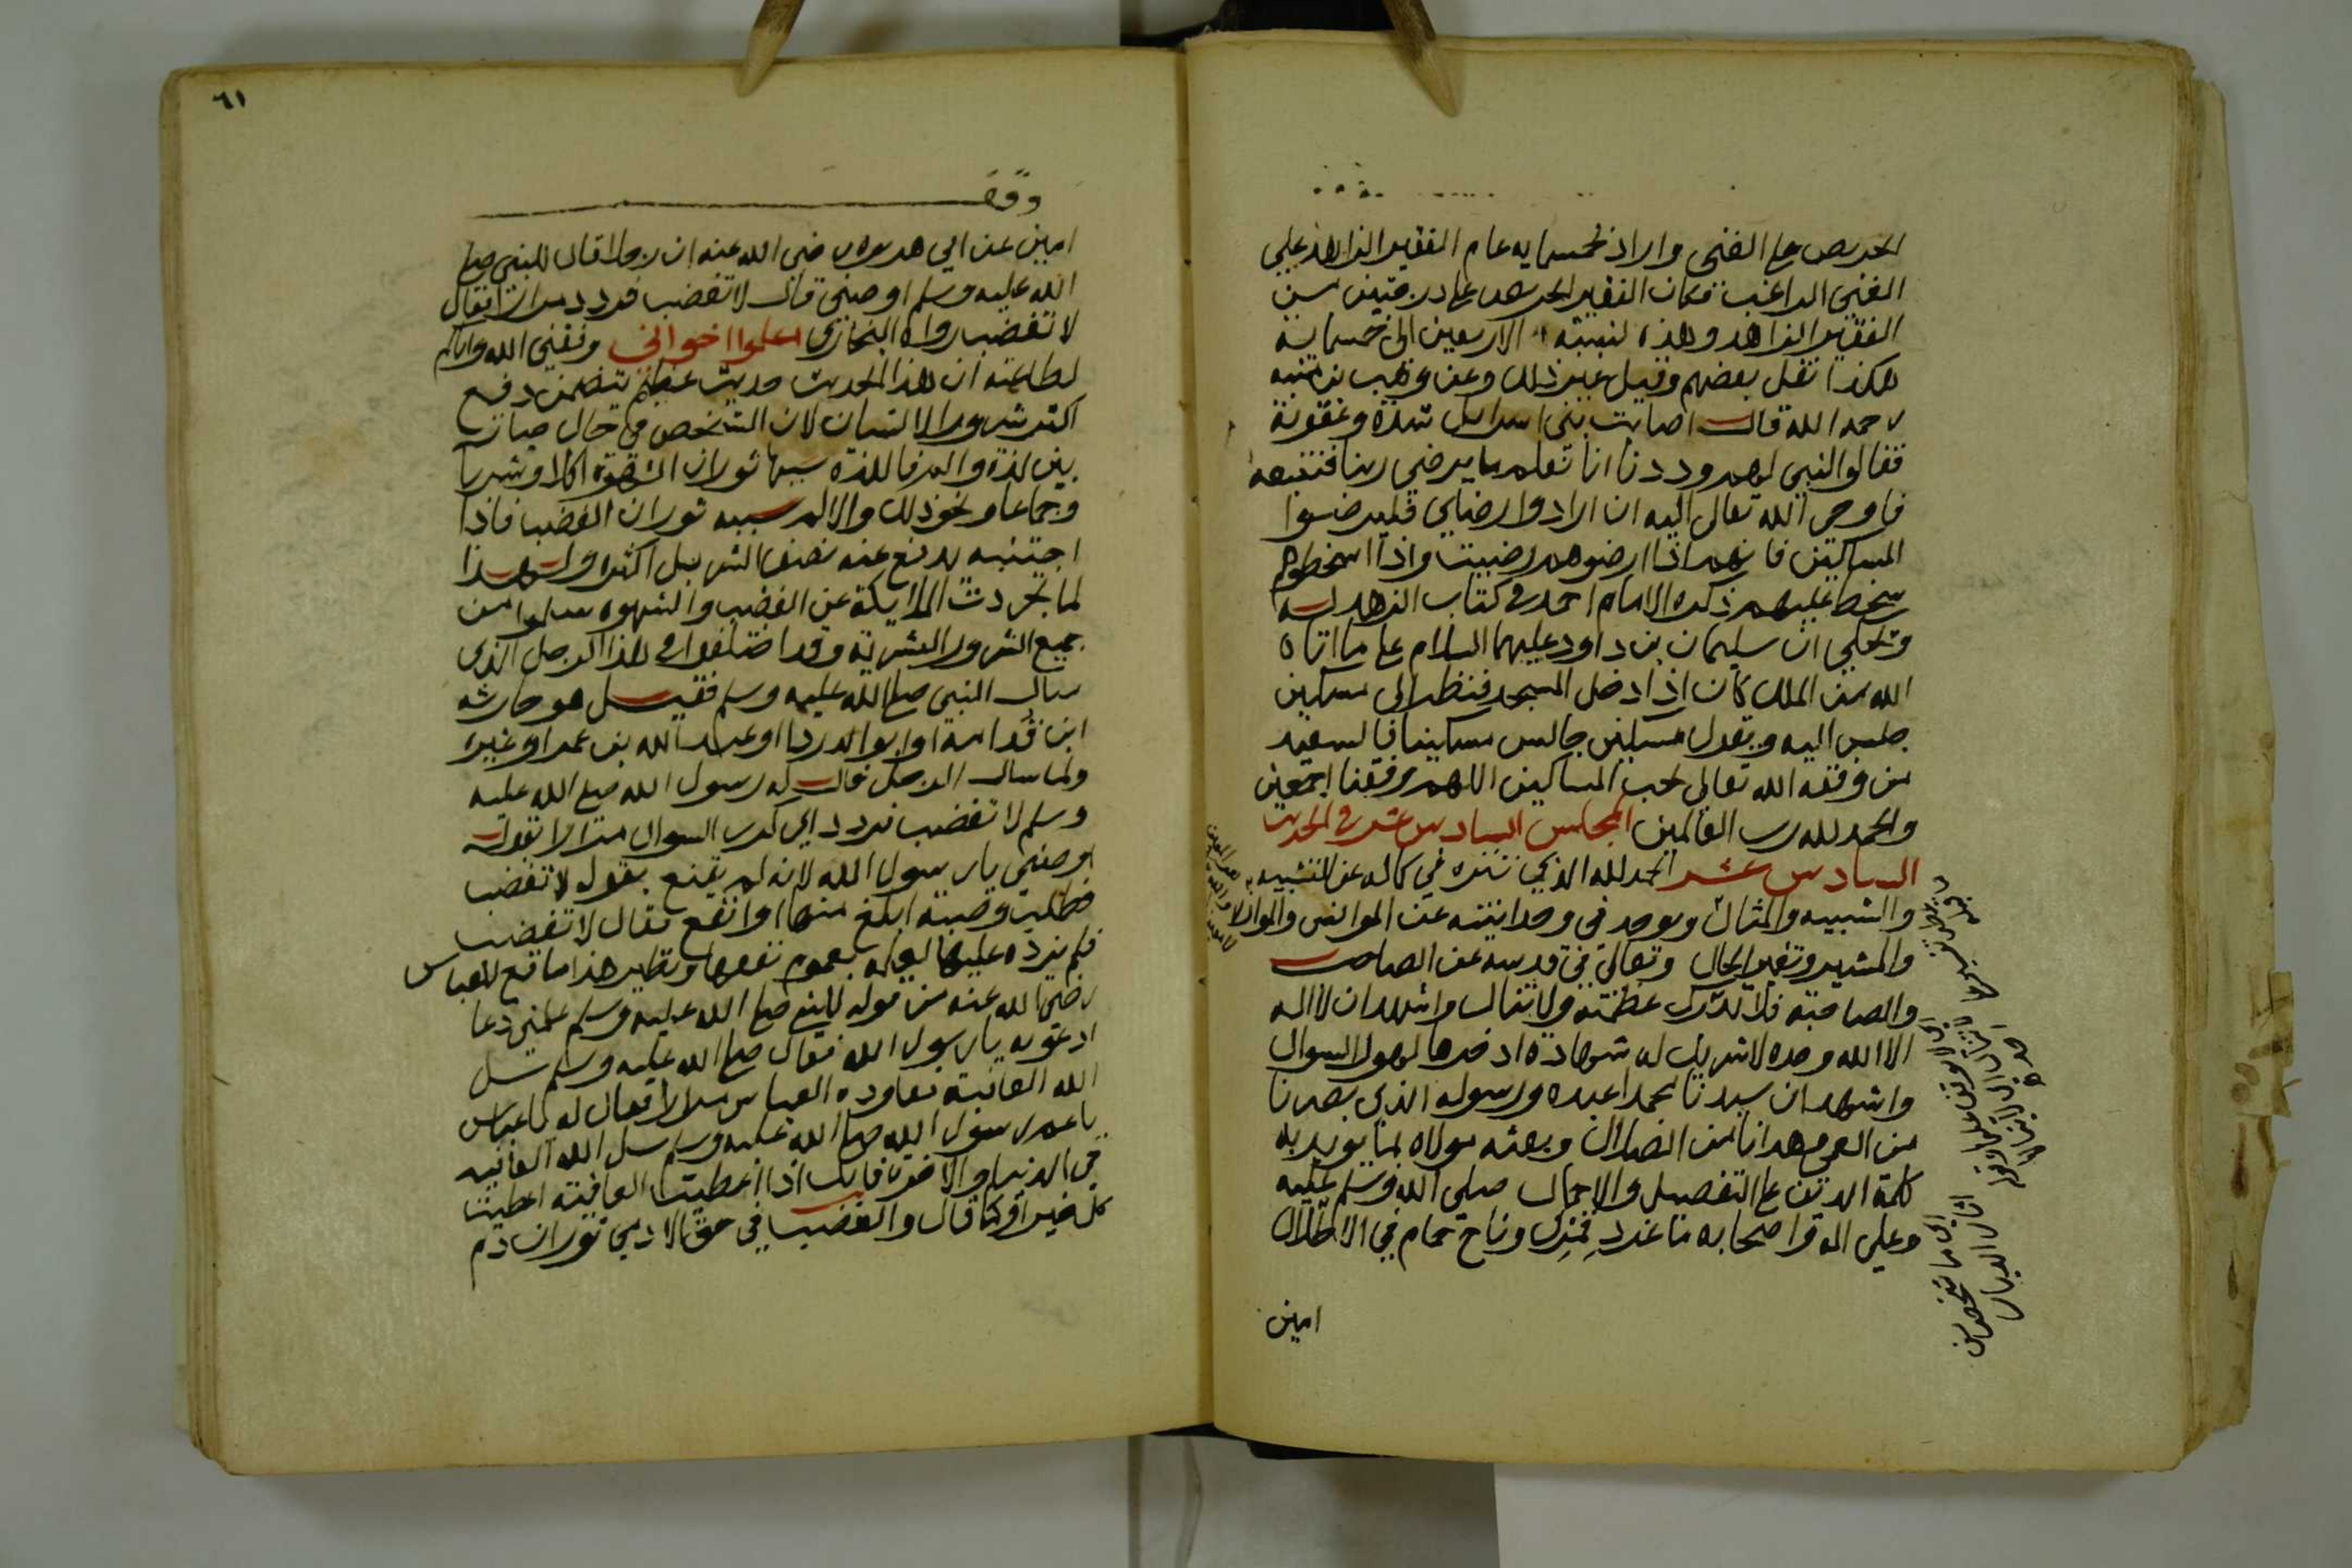 الحريص على الغنى واراد بخمسماية عام الفقير الزاهد على
الغني الراغب فكان الفقير الحريص على درجتين من
الفقير الزاهد وهذه نسبة الاربعين الى خمسماية
هكذا نقل بعضهم وقيل غير ذلك وعن وهب بن منبه
رحمه الله قال اصابت بني اسرائيل شدة وعقوبة
فقالوا لنبي لهم وددنا انا نعلم ما يرضي ربنا فنتبعه
فاوحى الله تعالى اليه ان ارادوا رضاي فليرضوا
المساكين فانهم اذا ارضوهم رضيت واذا اسخطوهم
سخطت عليهم ذكره الامام احمد في كتاب الزهد له
وحكي ان سليمان بن داود عليهما السلام على ما اتاه
الله من الملك كان اذا دخل المسجد فنظر الى مسكين
جلس اليه ويقول مسكين جالس مسكينا فالسعيد
من وفقه الله تعالى لحب المساكين اللهم وفقنا اجمعين
والحمد لله رب العالمين المجلس السادس عشر في الحديث
السادس عشر الحمد لله الذي تنزه في كماله عن التشبيه
والشبيه والمثال وتوحد في وحدانيته عن
والمشير وتغير الحال وتعالى في قدسه عن الصاحب
والصاحبة فلا تدرك عظمته ولا تنال واشهد ان لا اله
الا الله وحده لا شريك له شهادة ادخرها لهول السوال
واشهد ان سيدنا محمدا عبده ورسوله الذي بصرنا
من العمى وهدانا من الضلال وبعثه مولاه لما يويد به
كلمة الدين على التفصيل والاجمال صلى الله وسلم عليه
وعلى اله واصحابه ما غرد قمري وناح حمام في الاطلال
امين
٦١
وقف
امين عن ابي هريرة رضي الله عنه ان رجلا قال للنبي صلى
الله عليه وسلم اوصني قال لا تغضب فردد مرارا قال
لا تغضب رواه البخاري اعلموا اخواني وفقني الله واياكم
لطاعته ان هذا الحديث حديث عظيم يتضمن دفع
اكثر شرور الانسان لان الشخص في حال حياته
بين لذة والم فاللذة سببها ثوران الشهوة اكلا وشربا
وجماعا ونحو ذلك والالم سببه ثوران الغضب فاذا
اجتنبه يدفع عنه نصف الشر بل اكثره ولهذا
لما تجردت الملايكة عن الغضب والشهوة سلموا من
جميع الشرور البشرية وقد اختلفوا في هذا الرجل الذي
سال النبي صلى الله عليه وسلم فقيل هو جارية
ابن قدامة او ابو الدردا او عبد الله بن عمر او غيره
ولما سال الرجل قال له رسول الله صلى الله عليه
وسلم لا تغضب فردد اي كرر السوال مرارا بقوله
اوصني يا رسول الله لانه لم يقنع بقوله لا تغضب
فطلب وصية ابلغ منها وانفع فقال لا تغضب
فلم يزده عليها لعلمه بعموم نفعها ونظير هذا ما وقع للعباس
رضي الله عنه من قوله للنبي صلى الله عليه وسلم علمني دعا
ادعو به يا رسول الله فقال صلى الله عليه وسلم سل
الله العافية فعاوده العباس مرارا فقال له يا عباس
يا عم رسول الله صلى الله عليه وسلم سل الله العافية
في الدنيا والاخرة فانك اذا اعطيت العافية اعطيت
كل خير او كما قال والغضب في حق الادمي ثوران دم